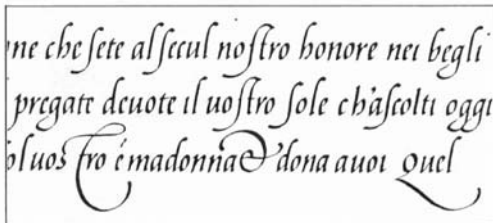 ne che ſete al ſecul noſtro honore nei begli
pregate deuote il uoſtro ſole ch'aſcolti oggi
ol uos tro é madonna & dona a uoi Quel